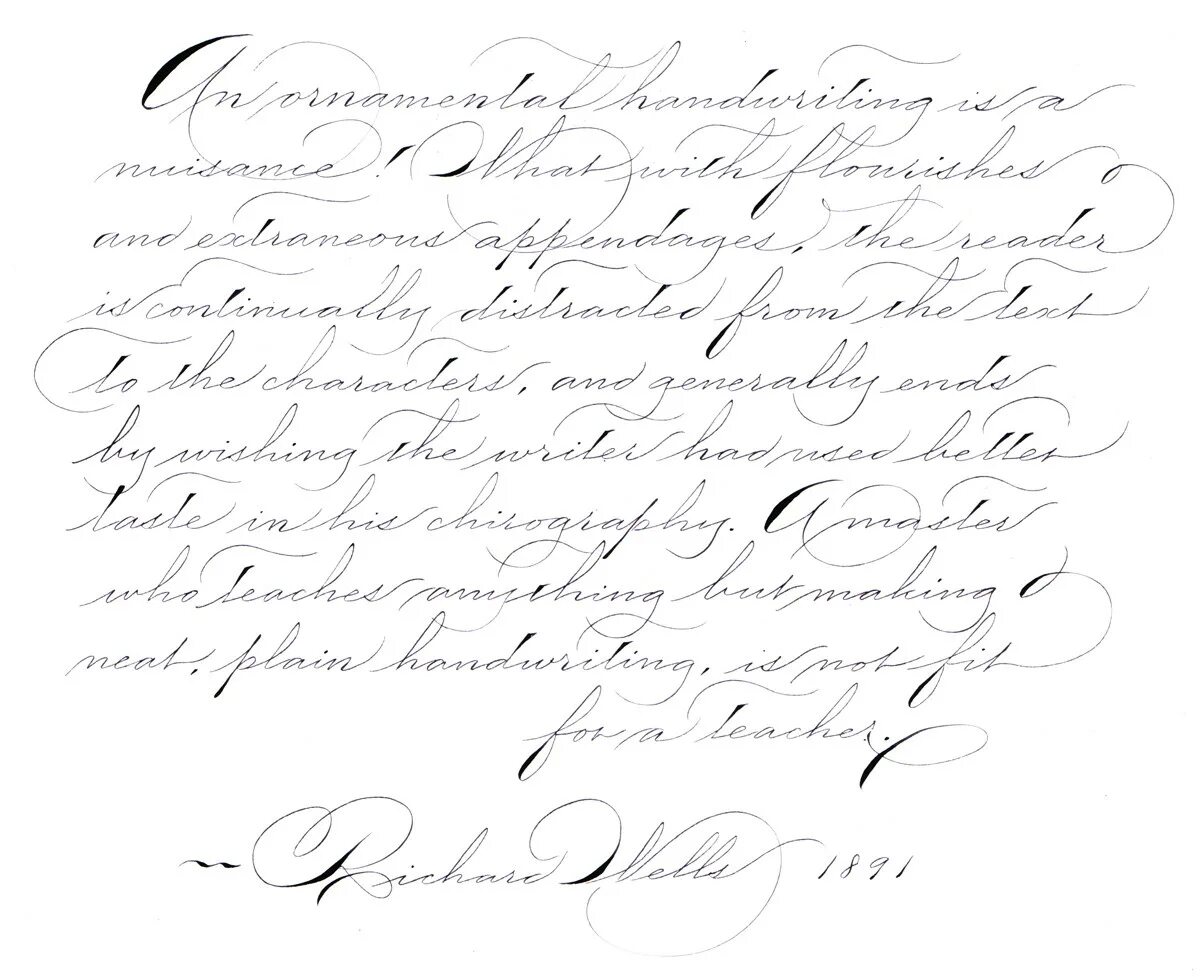 An ornamental handwriting is a
nuisance! What with flourishes
and extraneous appendages, the reader
is continually distracted from the text
to the characters, and generally ends
by wishing the writer had used better
taste in his chirography. A master
who teaches anything but making
neat, plain handwriting, is not fit
for a teacher.
~ Richard Wells 1891